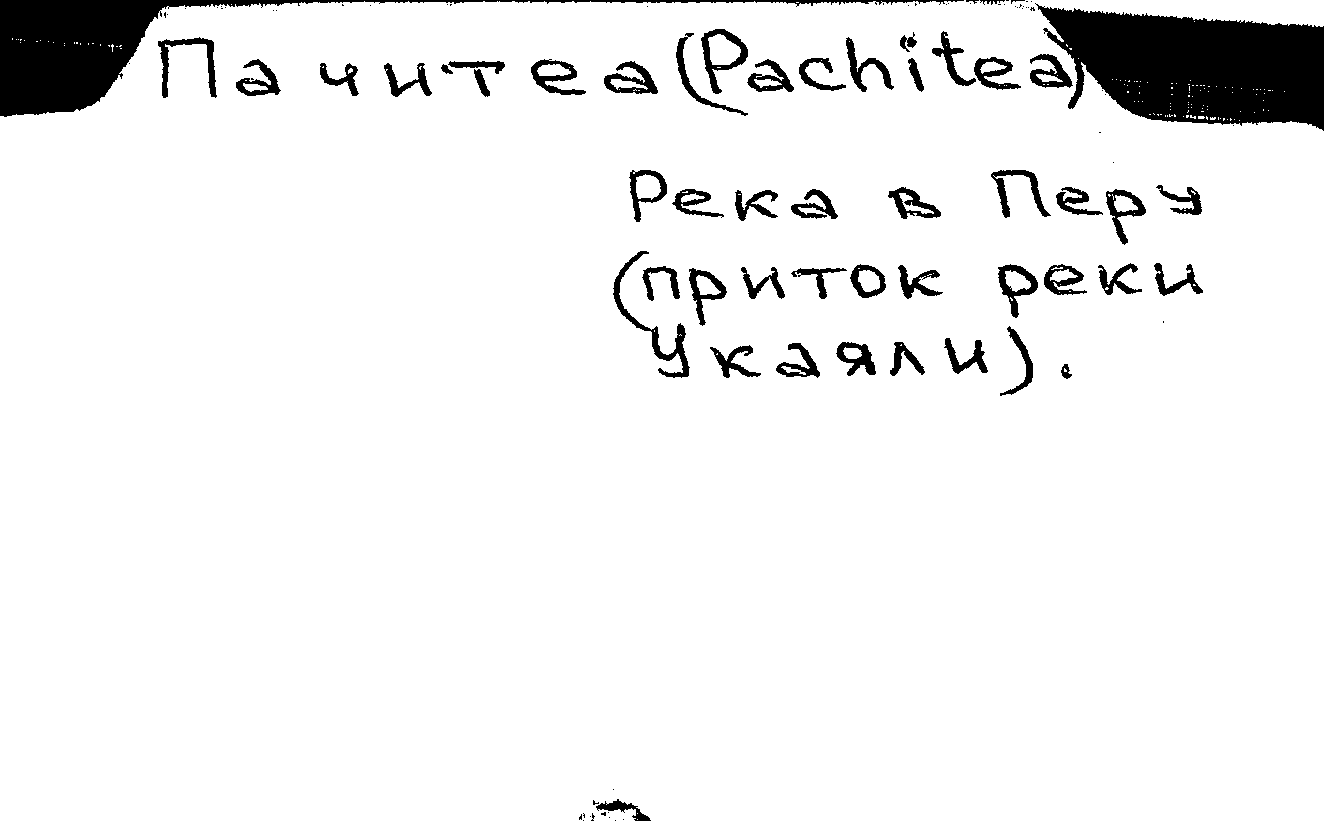 Пачитеа (Pachitea)
Река в Перу
(приток реки
Укаяли).